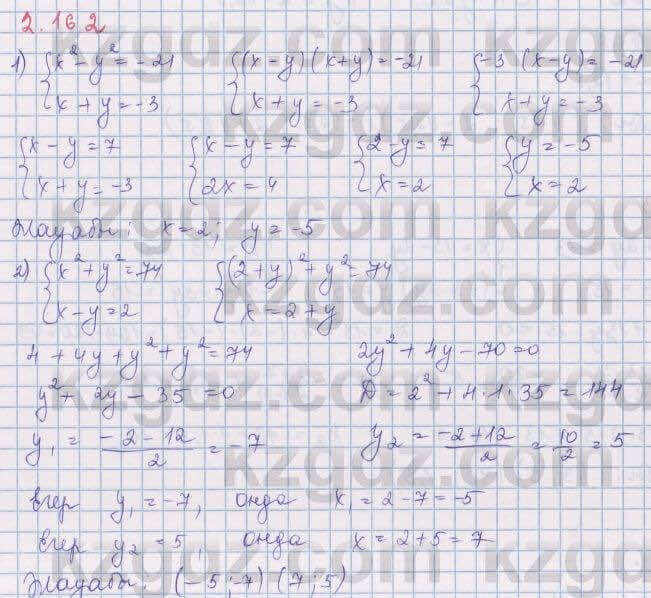 2.162
1) {x² - y² = -21 {(x - y)(x + y) = -21 {-3(x - y) = -21
x + y = -3 x + y = -3 x + y = -3
{x - y = 7 {x - y = 7 {2 - y = 7 {y = -5
x + y = -3 2x = 4 x = 2 x = 2
Жауабы: x = 2; y = -5
2) {x² + y² = 74 {(2 + y)² + y² = 74
x - y = 2 x = 2 + y
4 + 4y + y² + y² = 74 2y² + 4y - 70 = 0
y² + 2y - 35 = 0 D = 2² + 4·1·35 = 144
y₁ = (-2 - 12)/2 = -7 y₂ = (-2 + 12)/2 = 10/2 = 5
егер y₁ = -7, онда x₁ = 2 - 7 = -5
егер y₂ = 5, онда x = 2 + 5 = 7
Жауабы: (-5; -7) (7; 5)
kzgdz.com